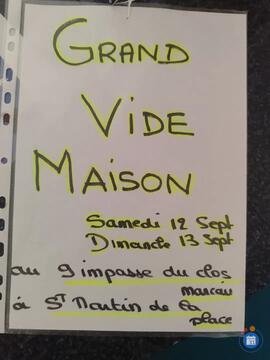 GRAND
VIDE
MAISON
Samedi 12 Sept
Dimanche 13 Sept
au 9 impasse du clos
marcau
à ST Martin de la
place